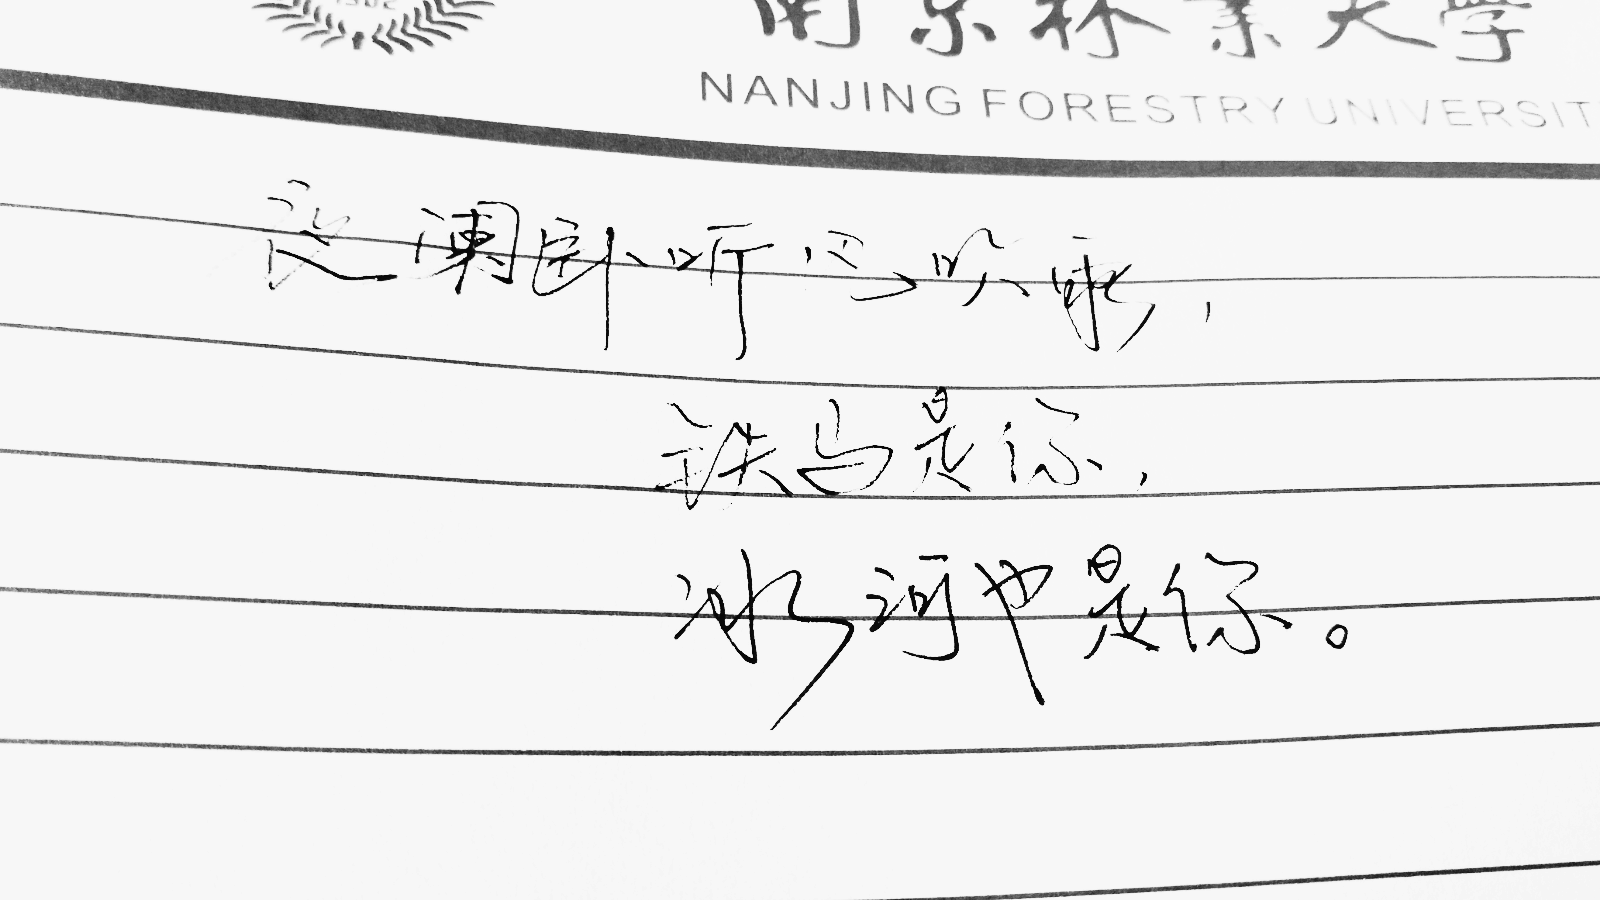 1902
南京林業大學
NANJING FORESTRY UNIVERSIT
夜阑卧听风吹雨，
铁马是你，
冰河也是你。